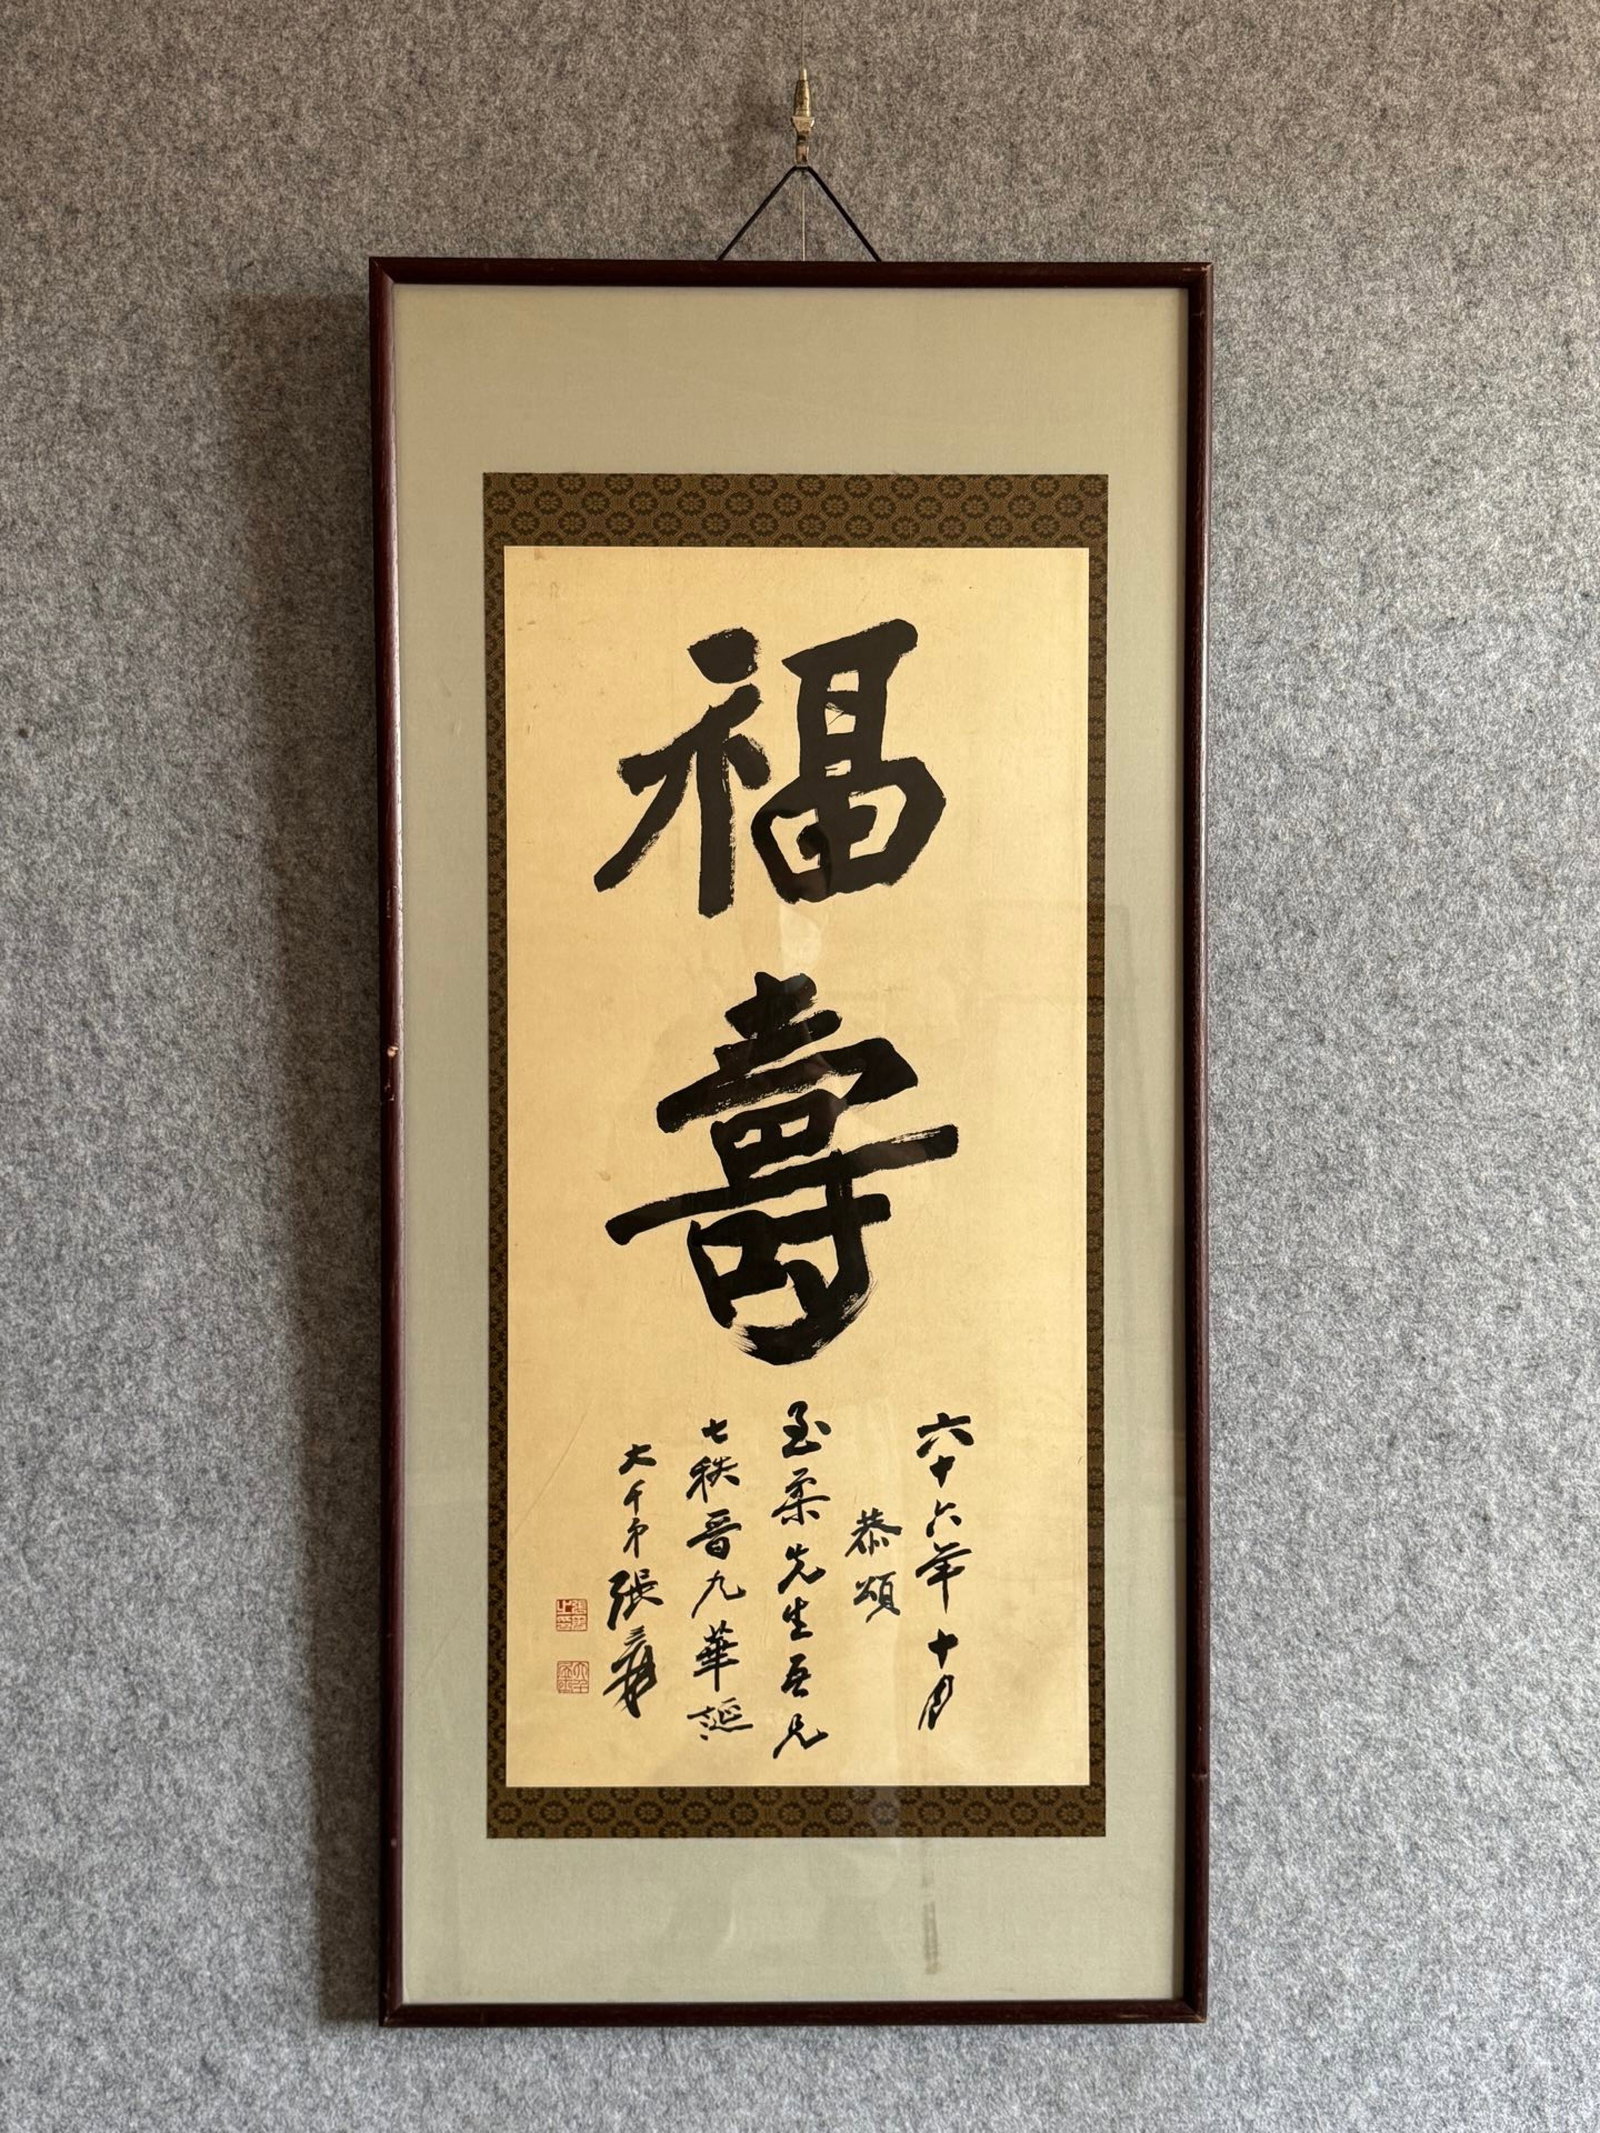 福壽
六十六年十月
恭頌
至柔先生吾兄
七秩晉九華誕
大千弟張爰
張爰之印